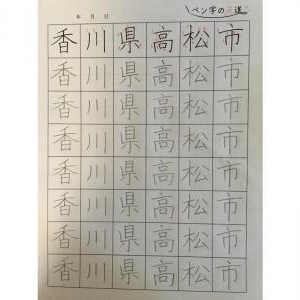 年 月 日
ペン字の花道
香川県高松市
香川県高松市
香川県高松市
香川県高松市
香川県高松市
香川県高松市
香川県高松市
香川県高松市